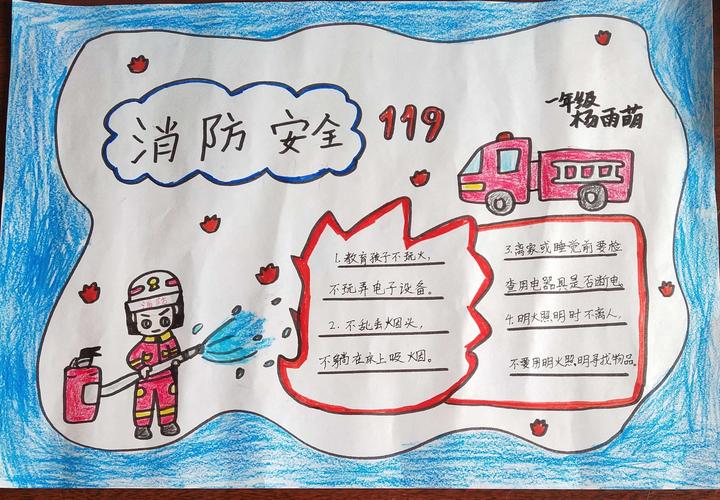 消防安全
119
一年级
杨雨萌
1.教育孩子不玩火,
不玩弄电子设备。
2.不乱丢烟头,
不躺在床上吸烟。
3.离家或睡觉前要检
查用电器具是否断电。
4.明火照明时不离人,
不要用明火照明寻找物品。
消防